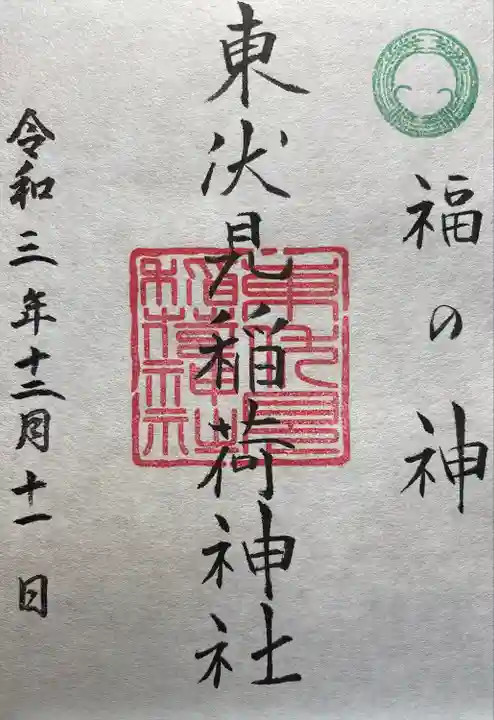 福の神
東伏見稲荷神社
令和三年十二月十一日